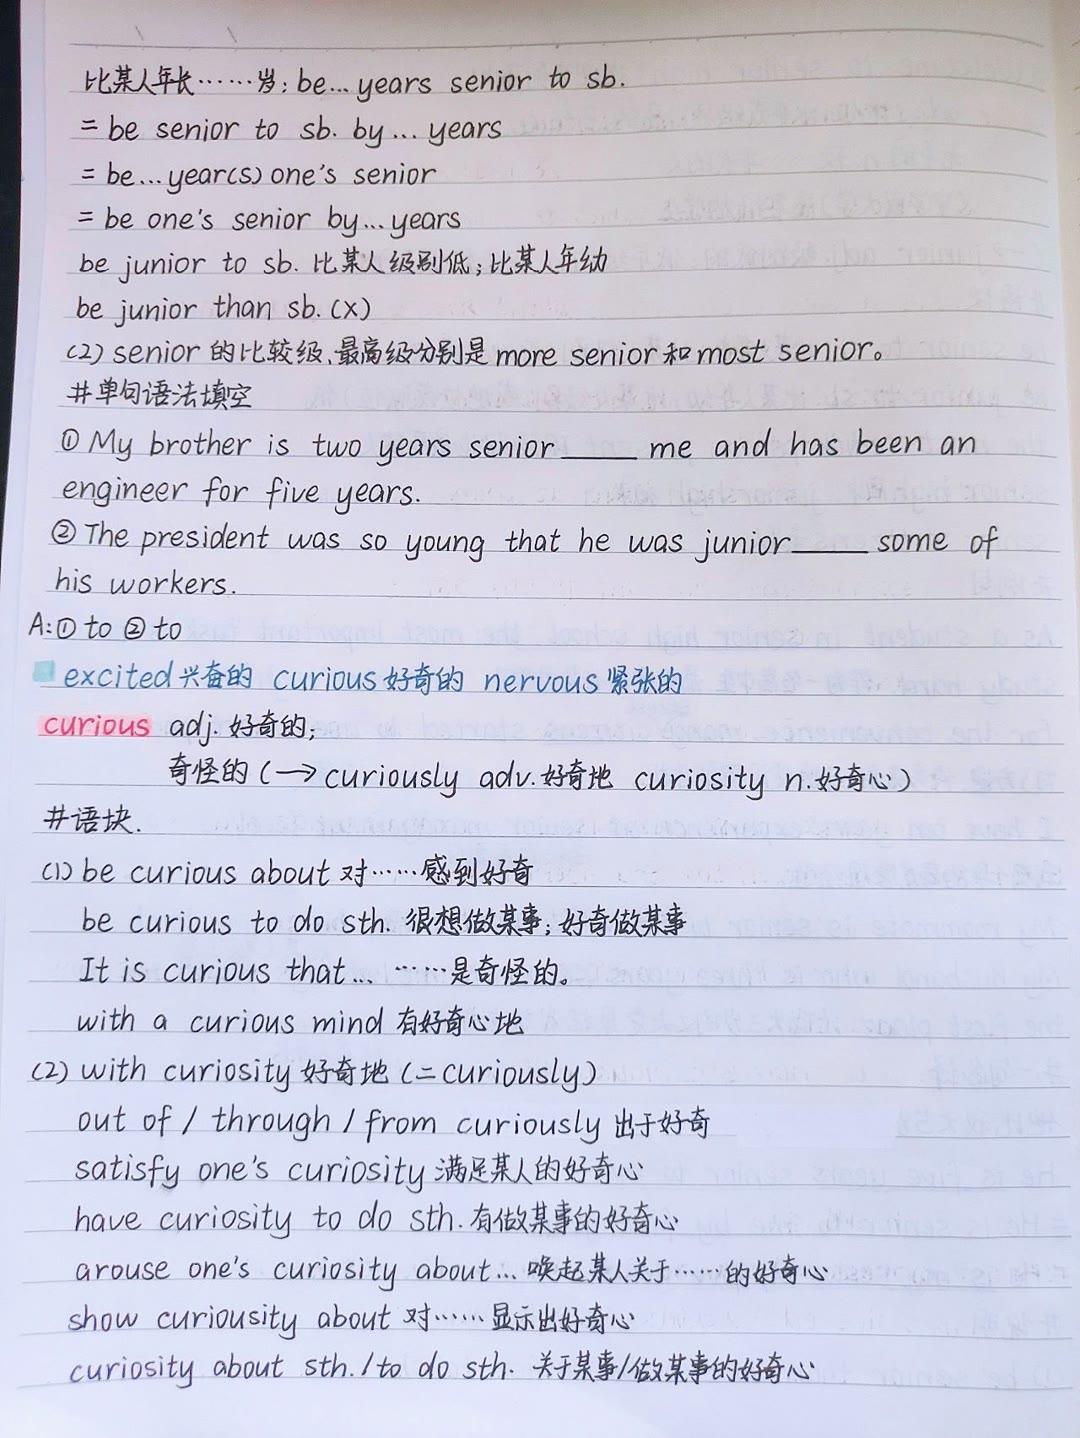 比某人年长……岁：be... years senior to sb.
= be senior to sb. by... years
= be...year(s) one's senior
= be one's senior by... years
be junior to sb. 比某人级别低；比某人年幼
be junior than sb. (×)
(2) senior 的比较级、最高级分别是 more senior 和 most senior。
#单句语法填空
① My brother is two years senior ____ me and has been an
engineer for five years.
② The president was so young that he was junior ____ some of
his workers.
A: ① to ② to
excited 兴奋的 curious 好奇的 nervous 紧张的
curious adj. 好奇的；
奇怪的 (→ curiously adv. 好奇地 curiosity n. 好奇心)
#语块.
(1) be curious about 对……感到好奇
be curious to do sth. 很想做某事；好奇做某事
It is curious that... ……是奇怪的。
with a curious mind 有好奇心地
(2) with curiosity 好奇地 (= curiously)
out of / through / from curiously 出于好奇
satisfy one's curiosity 满足某人的好奇心
have curiosity to do sth. 有做某事的好奇心
arouse one's curiosity about... 唤起某人关于……的好奇心
show curiousity about 对……显示出好奇心
curiosity about sth. / to do sth. 关于某事/做某事的好奇心